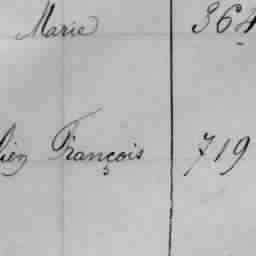 Marie 364
François 719